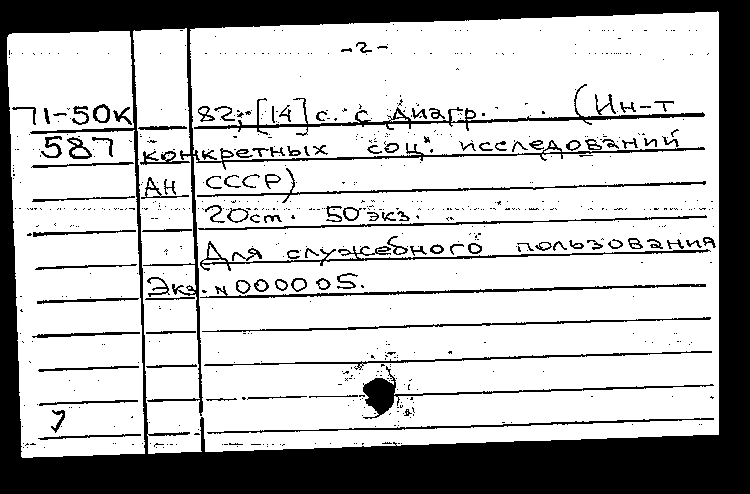 -2-
71-50к 82, [14] с. с диагр. (Ин-т
587 конкретных соц. исследований
АН СССР)
20 cm. 50 экз.
Для служебного пользования
Экз. N 000005.